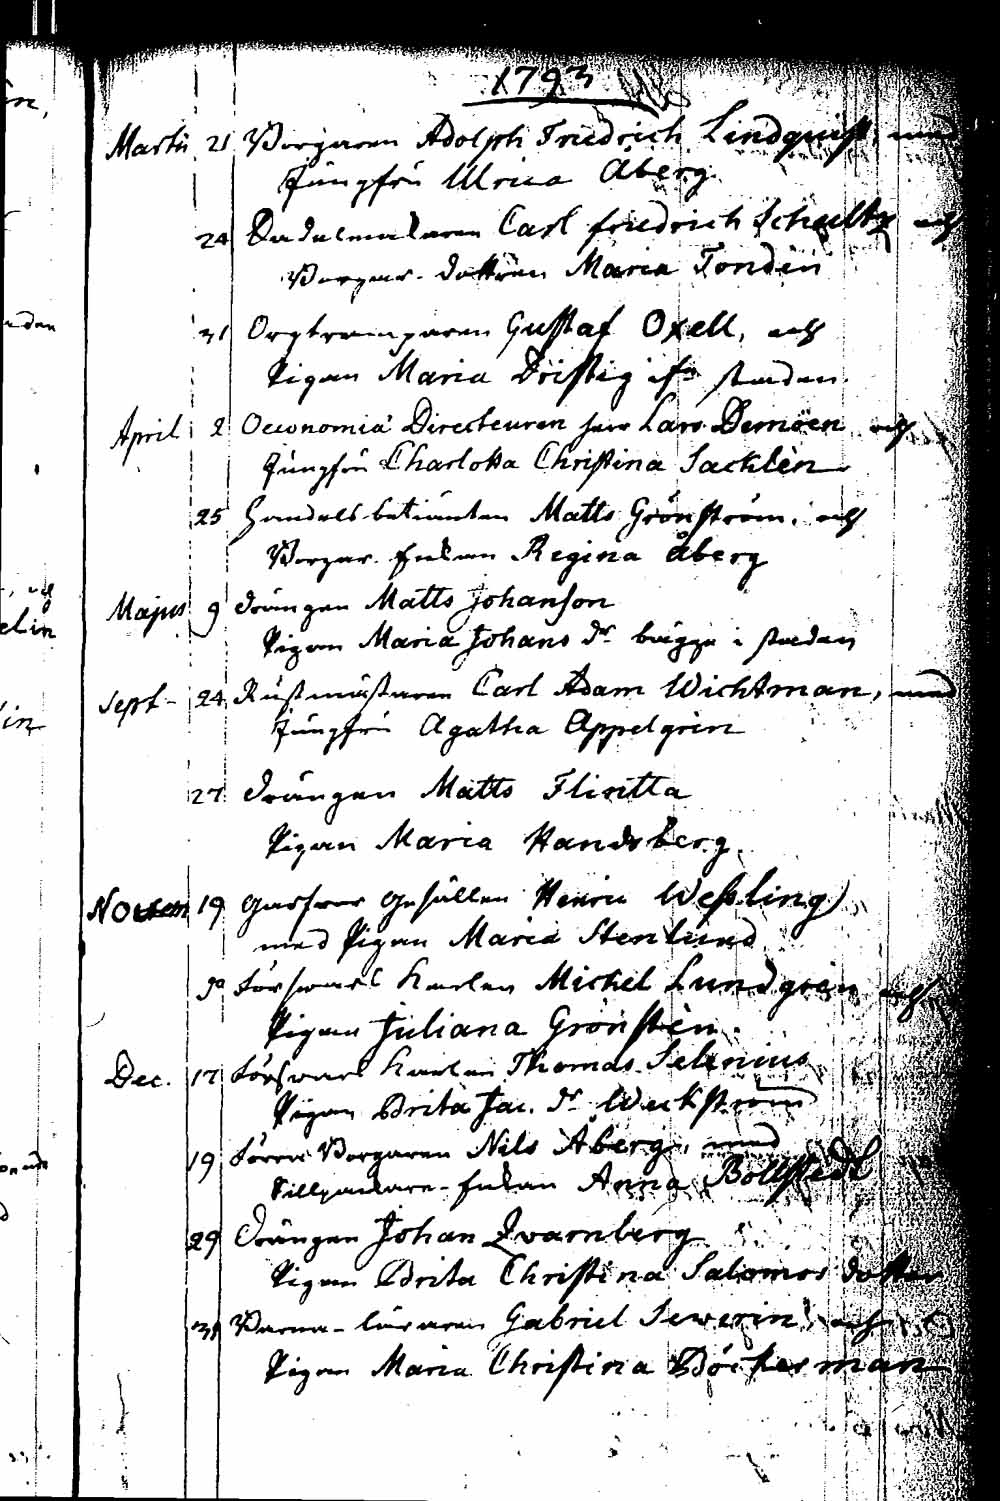 1793
Martii 21 Borgaren Adolph Friedrich Lindquist, med
Jungfru Ulrica Åberg
24 Sadelmakaren Carl friedrich Schultz och
Borgar-dottren Maria Tondin
31 Orgtramparen Gustaf Oxell, och
Pigan Maria Dristig ifn staden.
April 2 Oeconomiæ Directeuren herr Lars Demoen och
Jungfru Charlotta Christina Sacklén
25 Handels-betiänten Matts Grönström, och
Borgar-Enkan Regina Åberg
Majus 9 Drängen Matts Johanson
Pigan Maria Johans dr bägge i staden
Sept- 24 Rustmästaren Carl Adam Wichtman, med
Jungfru Agatha Appelgrén
27 Drängen Matts Flinta
Pigan Maria Handsberg.
Novem 19 Garfvar Gesällen Henric Wessling
med Pigan Maria Stenlund
do Försvars Karlen Michel Lundgrén och
Pigan Juliana Grönstén.
Dec. 17 Försvars Karlen Thomas Selenius
Pigan Brita Jac. dr Weckström
19 Förra Borgaren Nils Åberg, med
Enkan Anna Bollstedt
29 Drängen Johan Qvarnberg
Pigan Brita Christina Salomos dotter
31 Barna-läraren Gabriel Sewerin, och
Pigan Maria Christina Böckerman